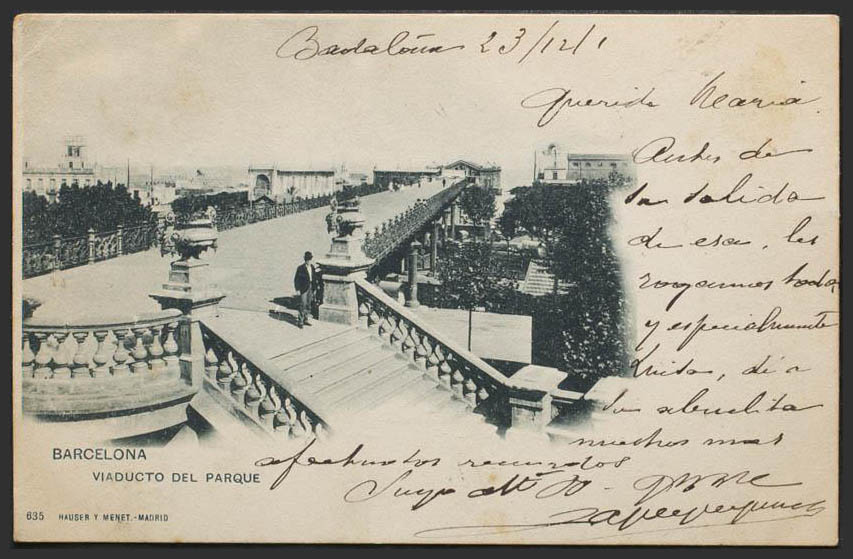 Badalona 23/12/1
Querida Maria
Antes de
su salida
de esa, les
rogamos todos
y especialmente
dé a
la abuelita
muchos mas
afectuosos recuerdos
Suya
BARCELONA
VIADUCTO DEL PARQUE
635 HAUSER Y MENET.-MADRID